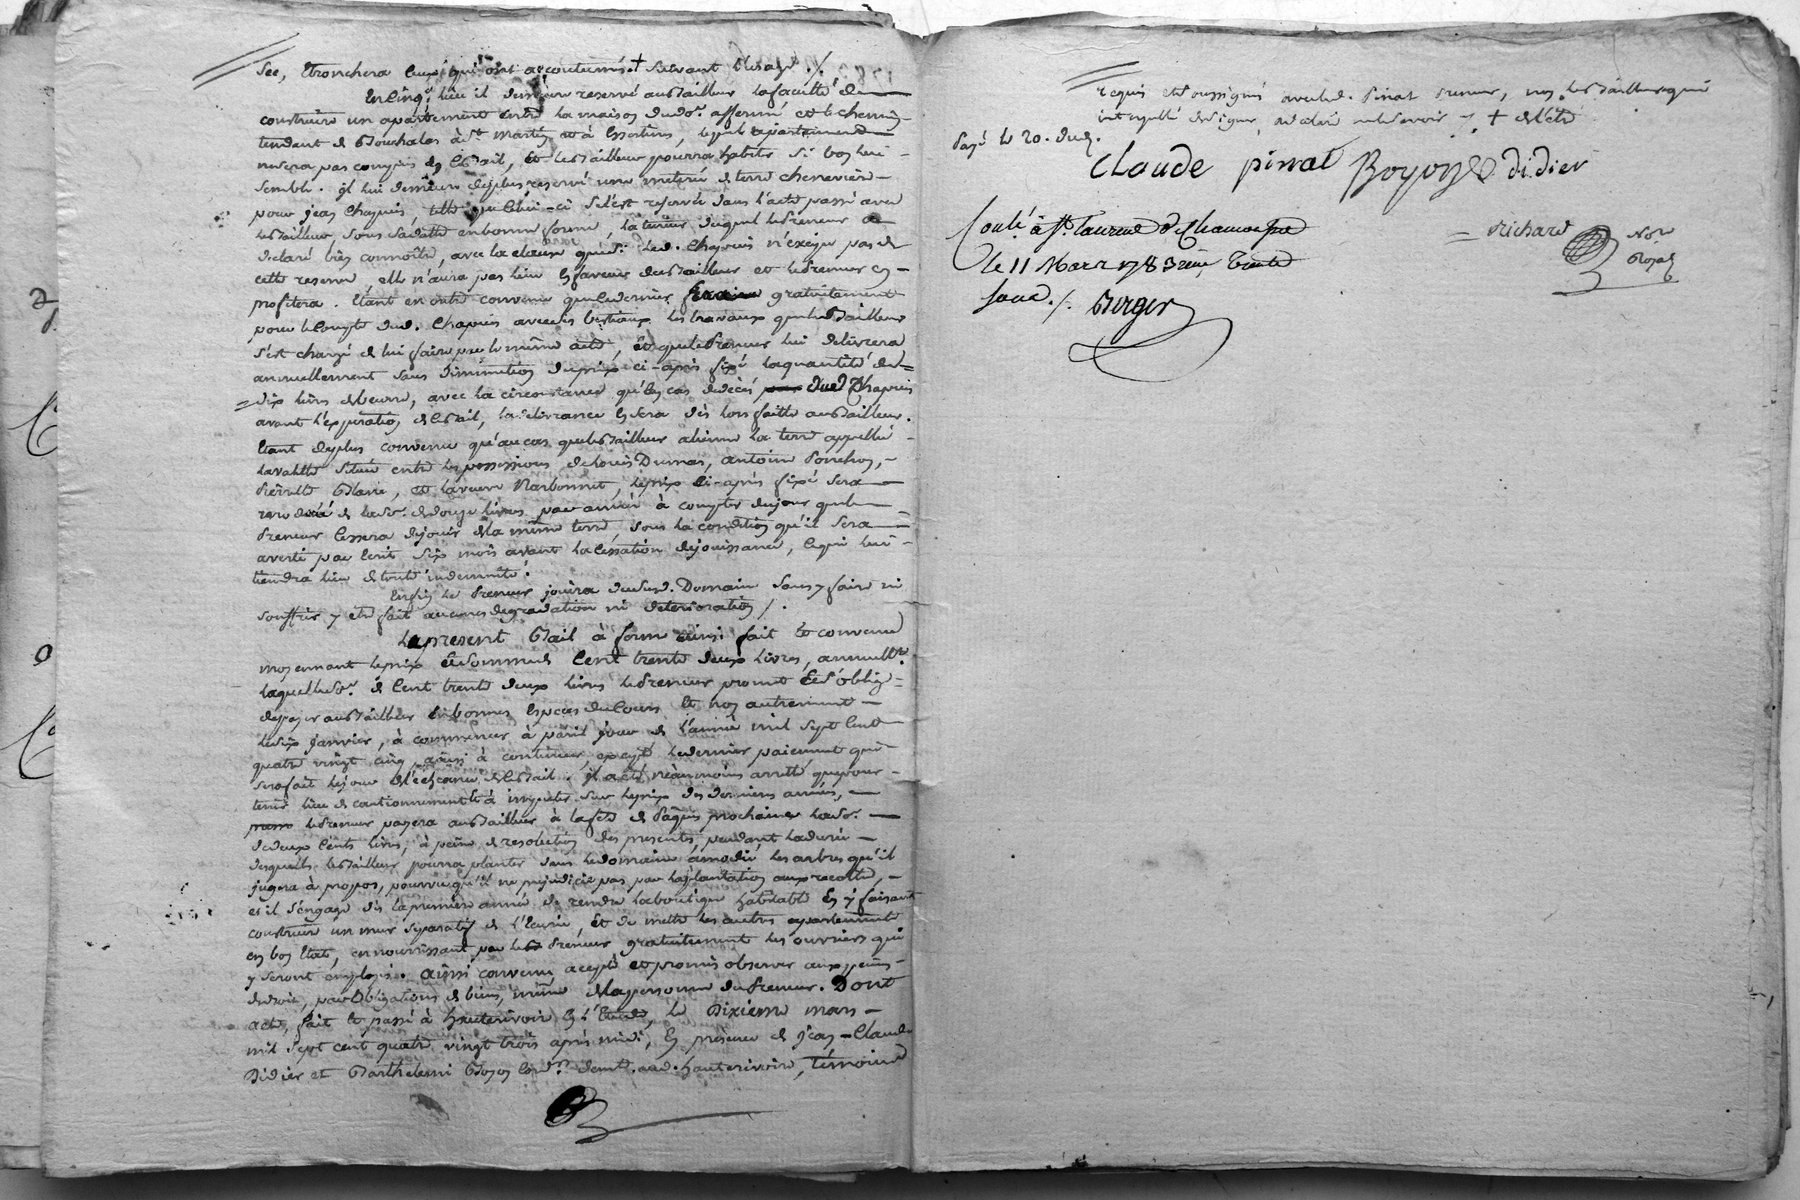 sec, tronchera ceux qui ont accoutumés + suivant l'usage ./.
En cinq.e lieu il demeure reservé au Bailleur la faculté de
construire un apartement entre la maison dud. affermé et le chemin
tendant de Bouchalas à St. martin et à Essertines, lequel apartement
ne sera pas compris en ce Bail, et le Bailleur pourra habiter si bon lui
semble. il lui demeure de plus reservé une meterée de terre cheneviere
pour jean Chapuis, telle que celui-ci s'est reservée dans l'acte passé avec
le Bailleur sous sa datte en bonne forme, la teneur duquel le Preneur a
declaré bien connoître, avec la clause que si led. Chapuis n'exige pas de
cette reserve, elle n'aura pas lieu en faveur du Bailleur et le Preneur en
profitera. Etant en outre convenu que ce dernier fera gratuitement
pour le compte dud. Chapuis avec ses bestiaux les travaux que le Bailleur
s'est chargé de lui faire par le même acte, et que le Preneur lui delivrera
annuellement sans diminution du prix ci-après fixé la quantité de
dix livres de beurre, avec la circonstance qu'en cas de décès dud Chapuis
avant l'expiration de ce Bail, la delivrance en sera dès lors faitte au Bailleur.
Etant de plus convenu qu'au cas que le Bailleur aliene la terre appellée
lavalette située entre les possessions de Louis Dumas, antoine Ponchon,
Pierrette Blanc, et la veuve Narbonnet, le prix ci-après fixé sera
reduit de la so. de douze livres par année à compter du jour que le
Preneur cessera de jouir de la même terre sous la condition qu'il sera
averti par ecrit six mois avant la cessation de jouissance, ce qui lui
tiendra lieu de toute indemnité.
Enfin le Preneur jouira dudit. Domaine sans y faire ni
souffrir y etre fait aucunes degradation ni deterioration /.
Le present Bail à ferme ainsi fait et convenu
moyennant le prix et somme de Cent trente deux livres, annuell.t
laquelle so. de Cent trente deux livres le Preneur promet et s'oblige
de payer au Bailleur en bonnes especes de cours et non autrement
le six janvier, à commencer à pareil jour de l'année mil sept cent
quatre vingt cinq, ainsi à continuer, excepté le dernier paiement qui
sera fait le jour de l'echéance de ce Bail. il a été néanmoins arretté que pour
tenir lieu de cautionnement et à imputer sur le prix des dernieres années,
le Preneur payera au Bailleur à la fete de Pâques prochaines la so.
de deux cents livres, à peine de resolution des presentes, pendant la durée
desquelles le Bailleur pourra planter dans le domaine amodié les arbres qu'il
jugera à propos, pourvu qu'il ne prejudicie pas par la plantation aux recoltes,
et il s'engage dès la premiere année de rendre la boutique habitable en y faisant
construire un mur separatif de l'Ecurie, et de mettre les autres apartements
en bon Etat, en nourrissant par le Preneur gratuitement les ouvriers qui
y seront employés. ainsi convenu, accepté et promis observer aux peines
de droit, par obligations de biens, même de la personne du Preneur. Dont
acte, fait et passé à hauterivoire en l'Etude, le Dixieme mars
mil sept cent quatre vingt trois après midi, en présence de jean-Claude
Didier et Barthelemi Boyon demt. aud. hauterivoire, témoins
requis et soussignés avec led. Pinat Preneur, non le Bailleur qui
interpellé de signer, a déclaré ne le savoir + de l'été
Payé le 20. dud.
Claude pinat Boyon didier
Richard No.re Royal
Conlé à St. Laurent de Chamousset
le 11 Mars 1783 reçu Trente
sous ./. Berger